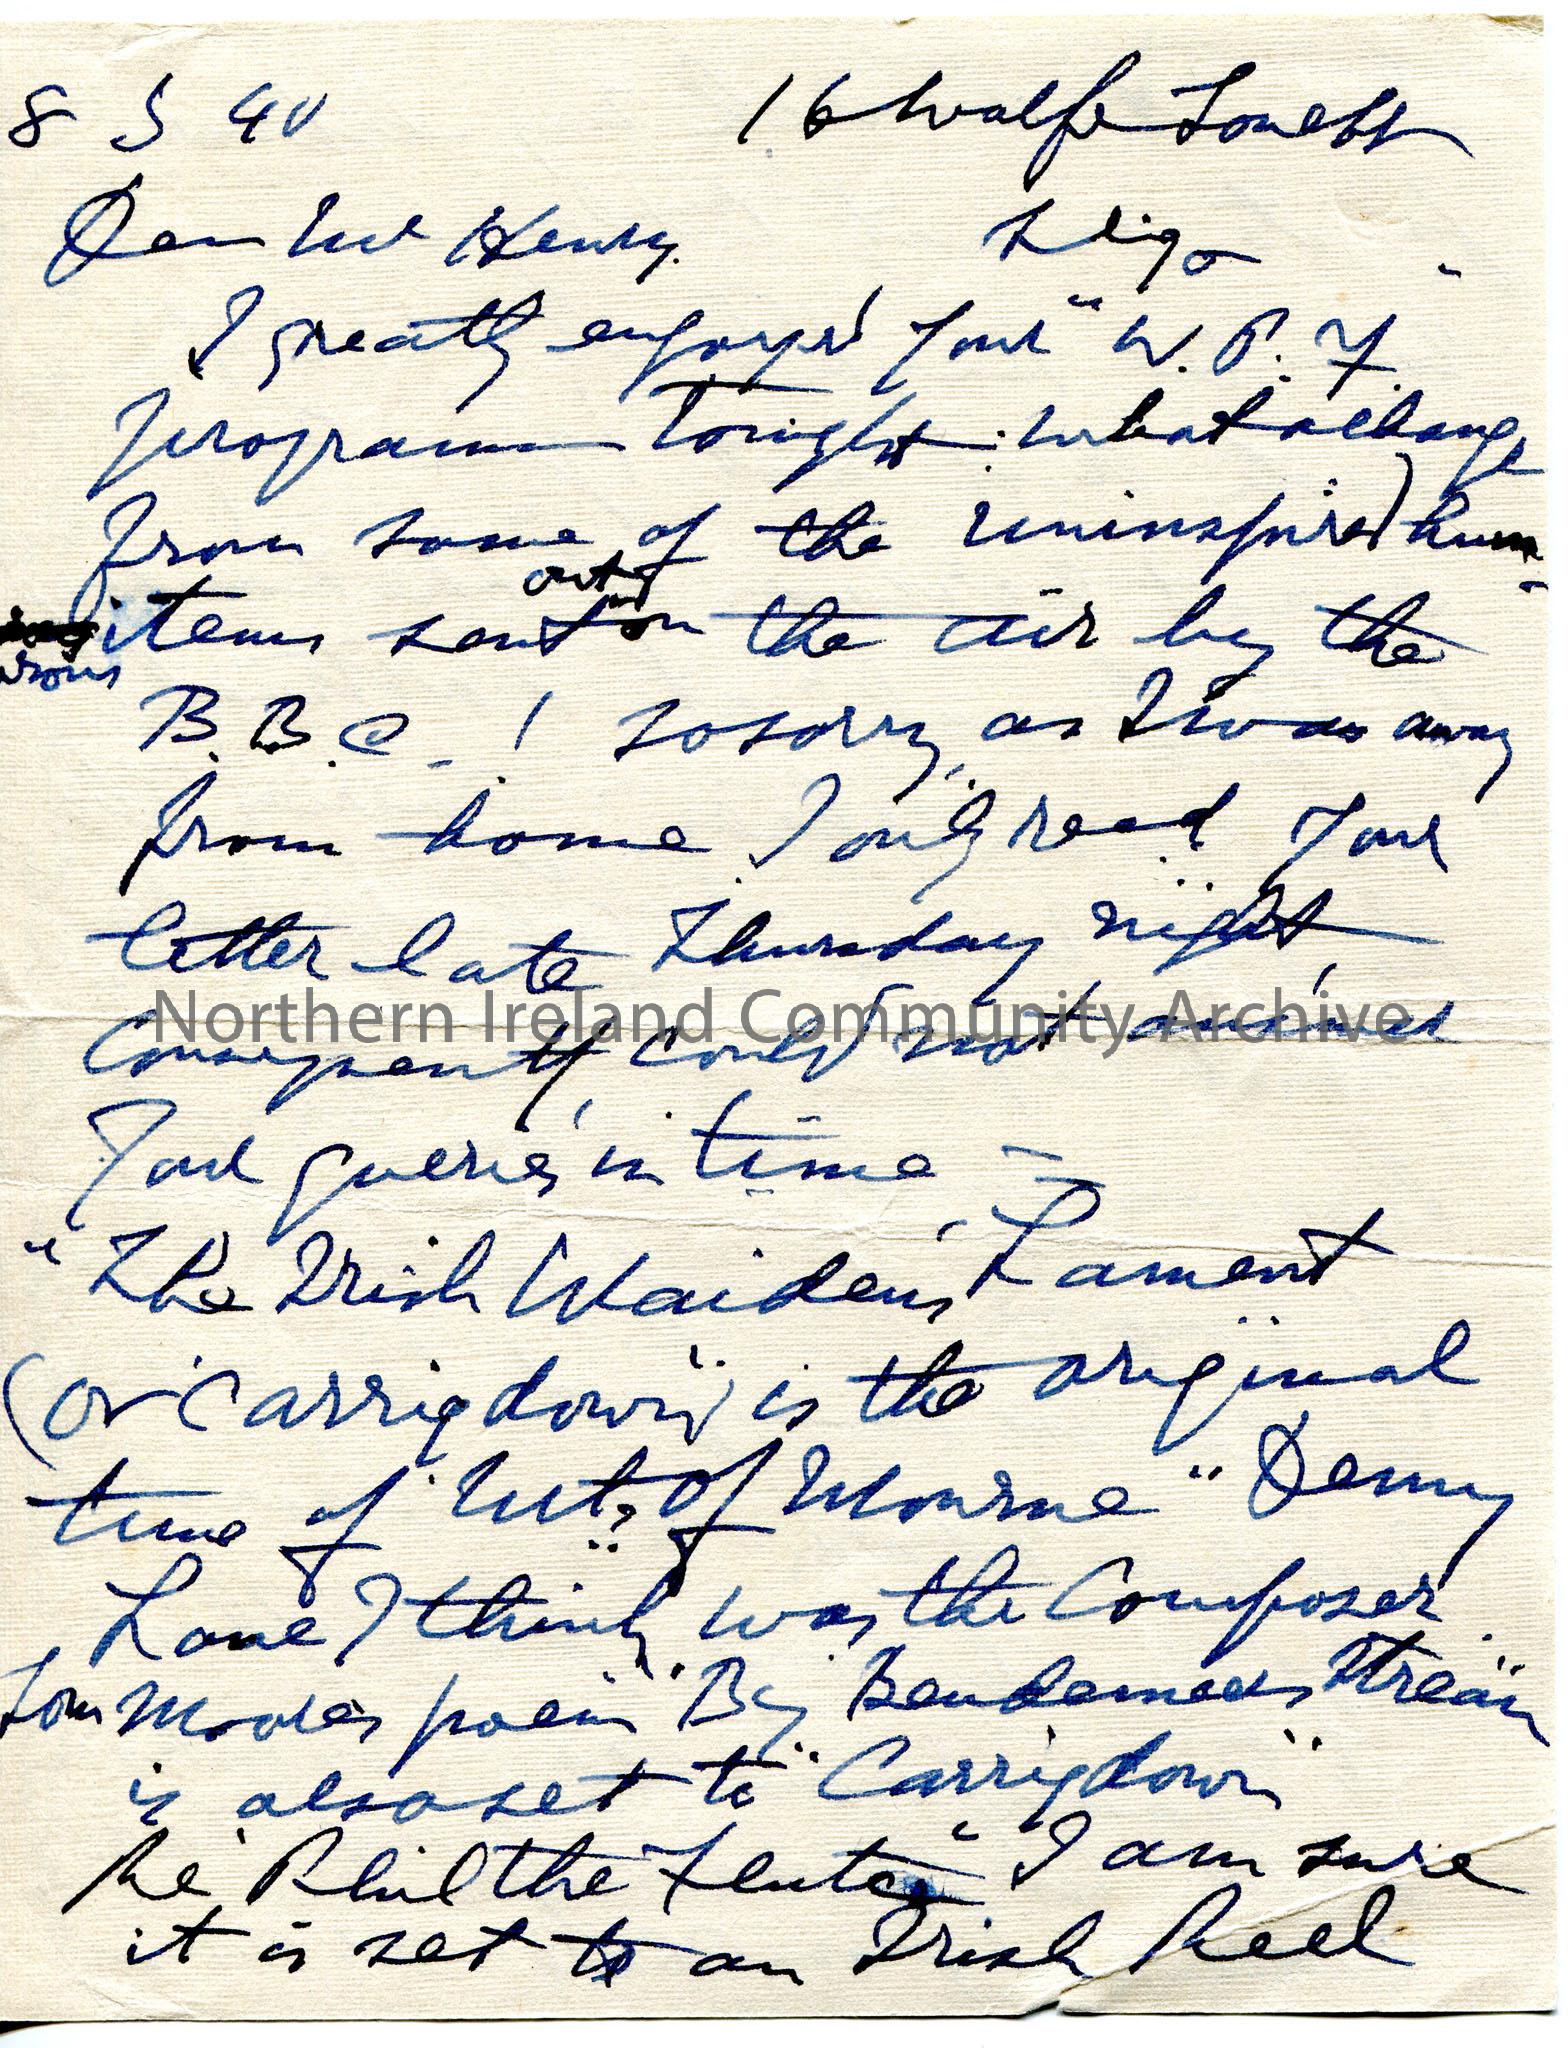 8 3 40 16 Wolfe Tone St
Sligo
Dear Mr Henry.
I greatly enjoyed your "W. P. F."
programme tonight: what a change
from some of the uninspired hum-
orous items sent out on the air by the
B.B.C.! So sorry, as I was away
from home I only read your
letter late Thursday night,
Consequently could not answer
your queries in time -
Northern Ireland Community Archive
"The Irish Maiden's Lament
(or 'Carrigdown') is the original
tune of 'Mts. of Mourne" Denny
Lane I think was the Composer.
Tom Moore's poem "By Bendemeer's Stream"
is also set to "Carrigdown"
Re 'Phil the Fluter" I am sure
it is set to an Irish Reel